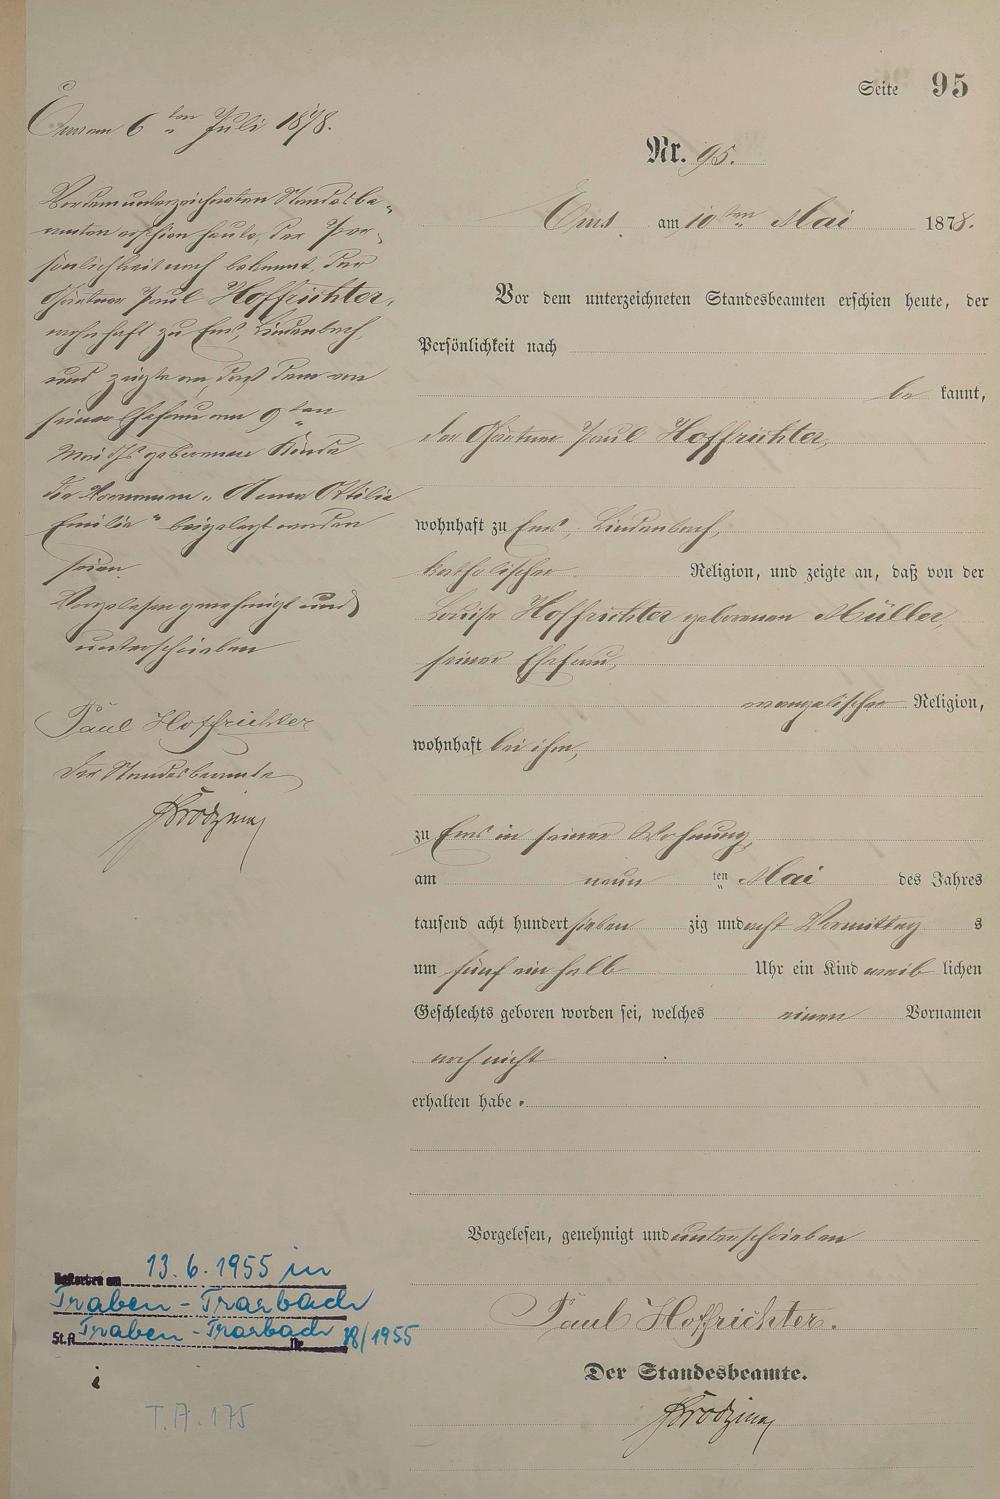 Seite 95
Nr. 95.
Ems am 10ten Mai 1878.
Vor dem unterzeichneten Standesbeamten erschien heute, der
Persönlichkeit nach
be kannt,
der Gärtner Paul Hoffrichter,
wohnhaft zu Ems, Lindenbach,
katholischer Religion, und zeigte an, daß von der
Louise Hoffrichter geborenen Müller,
seiner Ehefrau,
evangelischer Religion,
wohnhaft bei ihm,
zu Ems in seiner Wohnung,
am neun ten Mai des Jahres
tausend acht hundert sieben zig und acht Vormittag s
um fünf ein halb Uhr ein Kind weib lichen
Geschlechts geboren worden sei, welches einen Vornamen
noch nicht
erhalten habe.
Vorgelesen, genehmigt und unterschrieben
Paul Hoffrichter.
Der Standesbeamte.
Ems am 6ten Juli 1878.
Vor dem unterzeichneten Standesbe-
amten erschien heute, der Per-
sönlichkeit nach bekannt, der
Gärtner Paul Hoffrichter,
wohnhaft zu Ems, Lindenbach,
und zeigte an, daß dem von
seiner Ehefrau am 9ten
Mai ds geborenen Kinde
die Vornamen „Anna Ottilie
Emilie" beigelegt worden
seien.
Vorgelesen genehmigt und
unterschrieben
Paul Hoffrichter
Der Standesbeamte
Gestorben am 13.6.1955 in
Traben-Trarbach
St.A. Traben-Trarbach Nr. 18/1955
T.A. 175